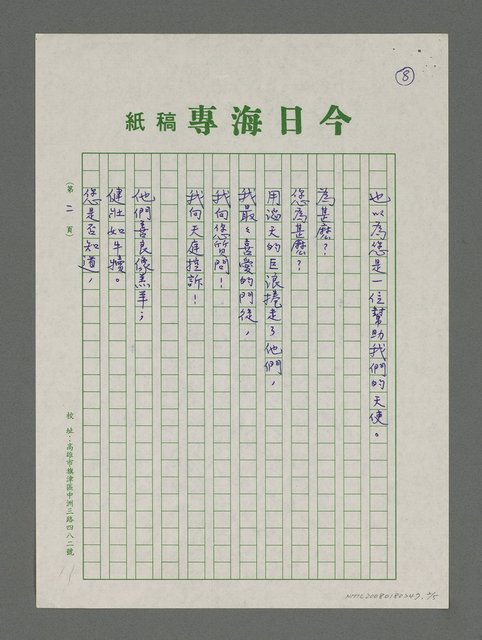 ⑧
今日海專稿紙
也以為您是一位幫助我們的天使。
為甚麼？
您為甚麼？
用滔天的巨浪捲走了他們，
我最最喜愛的門徒，
我向您質問！
我向天庭控訴！
他們善良像羔羊；
健壯如牛犢。
您是否知道，
（第二頁）
校址：高雄市旗津區中洲三路四八二號